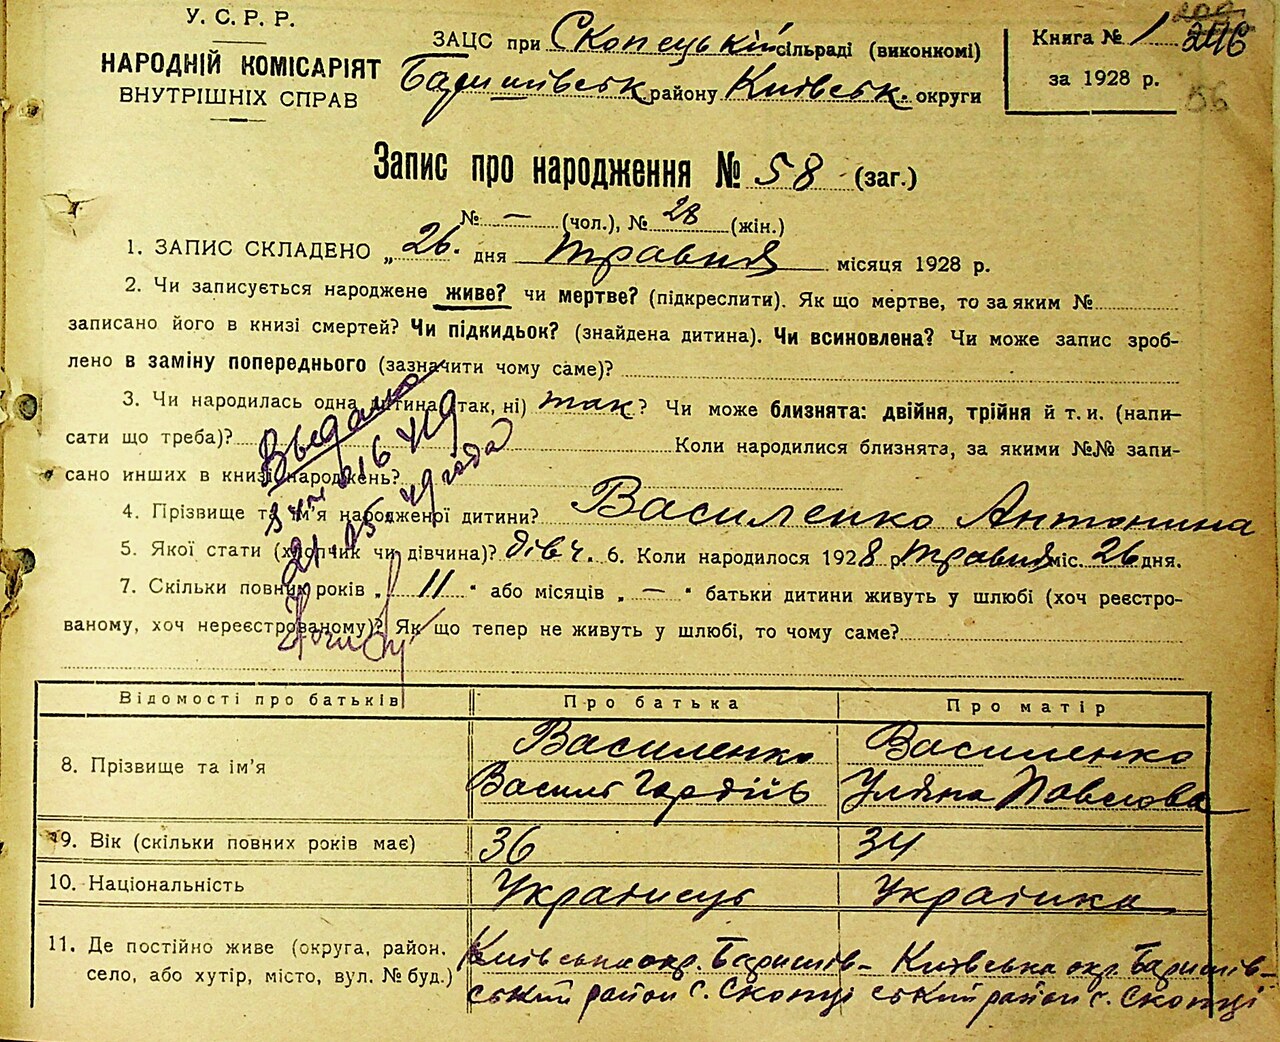 У. С. Р. Р.
НАРОДНІЙ КОМІСАРІЯТ
ВНУТРІШНІХ СПРАВ
ЗАЦС при Скопецькій сільраді (виконкомі)
Баришівськ району Київськ. округи
Книга № 1
за 1928 р.
200
246
56
Запис про народження № 58 (заг.)
№ — (чол.), № 28 (жін.)
1. ЗАПИС СКЛАДЕНО „ 26. дня травня місяця 1928 р.
2. Чи записується народжене живе? чи мертве? (підкреслити). Як що мертве, то за яким №
записано його в книзі смертей? Чи підкидьок? (знайдена дитина). Чи всиновлена? Чи може запис зроб-
лено в заміну попереднього (зазначити чому саме)?
3. Чи народилась одна дитина (так, ні) так ? Чи може близнята: двійня, трійня й т. и. (напи-
сати що треба)? Коли народилися близнята, за якими №№ запи-
сано инших в книзі народжень?
4. Прізвище та ім'я народженої дитини? Василенко Антонина
5. Якої стати (хлопчик чи дівчина)? дівч. 6. Коли народилося 1928 р. травня міс. 26 дня.
7. Скільки повних років „ 11 " або місяців „ — " батьки дитини живуть у шлюбі (хоч реєстро-
ваному, хоч нереєстрованому)? Як що тепер не живуть у шлюбі, то чому саме?
Выдано
21 05. 49 года
Відомості про батьків Про батька Про матір
8. Прізвище та ім'я Василенко Василь Гордіїв Василенко Уляна Павлова
9. Вік (скільки повних років має) 36 34
10. Національність Українець Українка
11. Де постійно живе (округа, район, село, або хутір, місто, вул. № буд.) Київська окр. Баришів-ський район с. Скопці Київська окр. Баришів-ський район с. Скопці